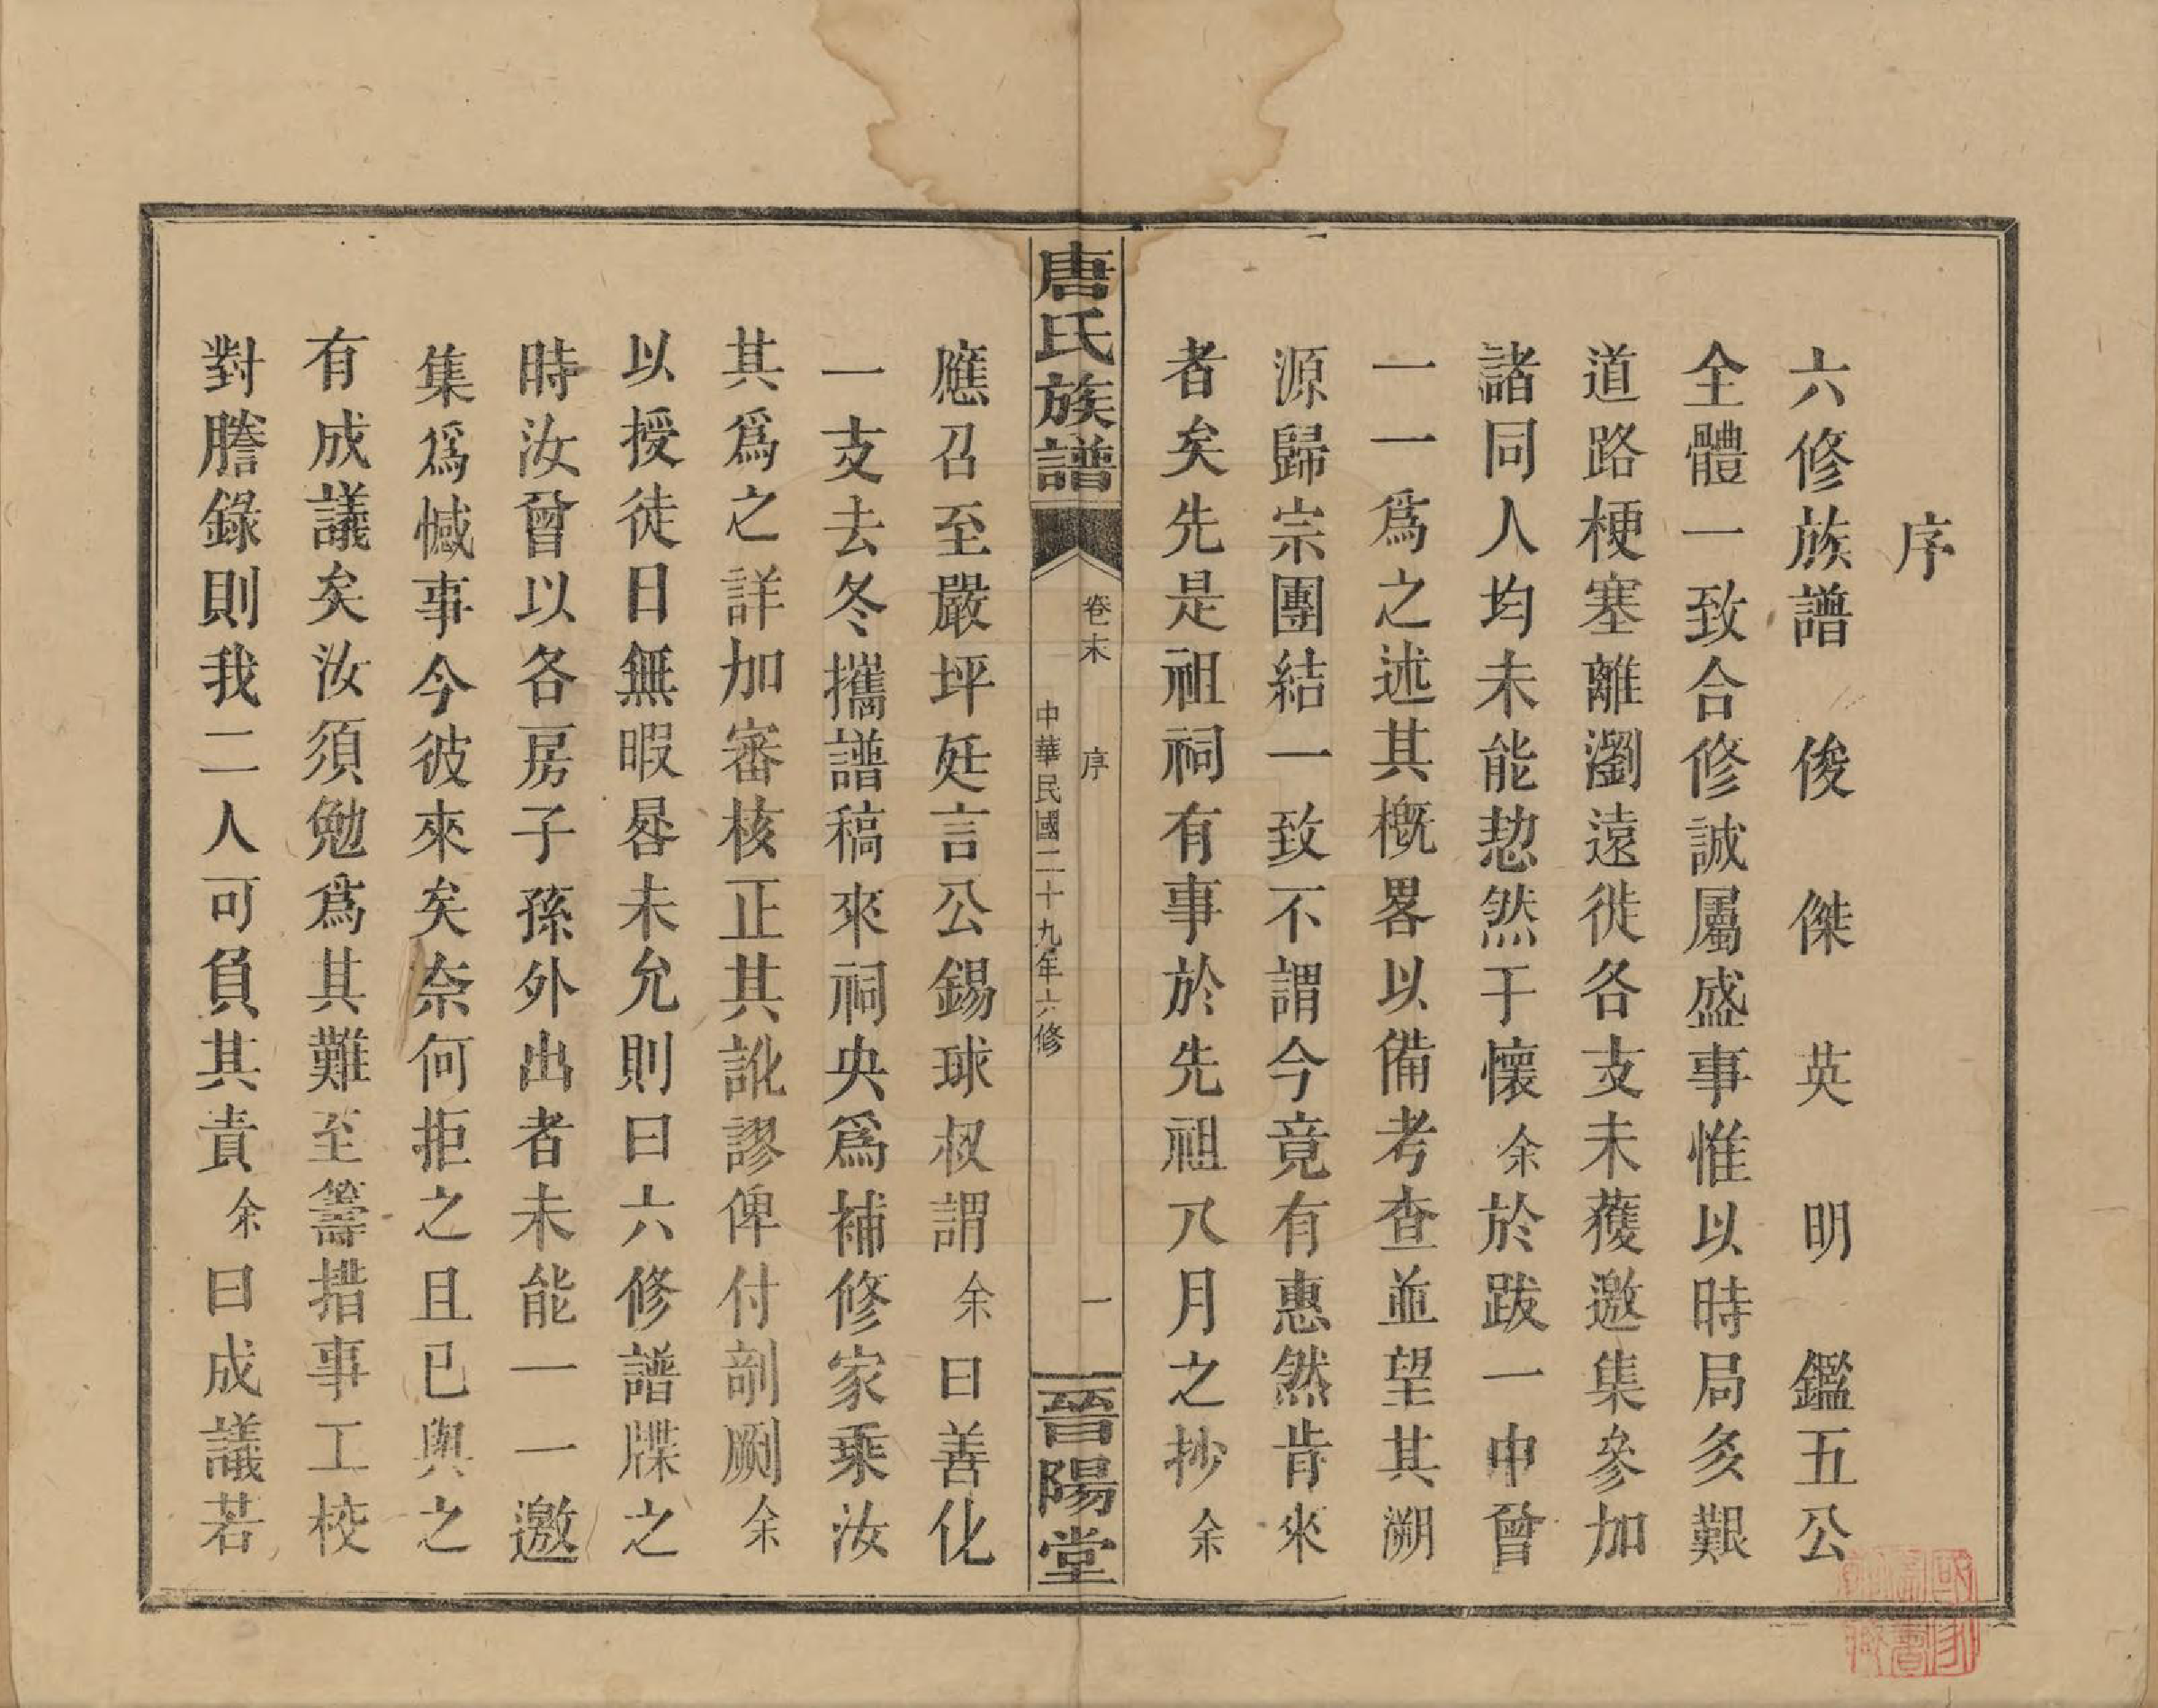 序
六修族譜俊傑英明鑑五公
全體一致合修誠屬盛事惟以時局多艱
道路梗塞離瀏遠徙各支未蒦邀集參加
諸同人均未能恝然于懷余於跋一中曾
一一爲之述其概畧以備考查並望其溯
源歸宗團結一致不謂今竟有惠然肯來
者矣先是祖祠有事於先祖八月之抄余
唐氏族譜
卷末 序 一
中華民國二十九年六修
晉陽堂
應召至嚴坪廷言公錫球叔謂余曰善化
一支去冬攜譜稿來祠央爲補修家乘汝
其爲之詳加審核正其訛謬俾付剞劂余
以授徒日無暇晷未允則曰六修譜牒之
時汝曾以各房子孫外出者未能一一邀
集爲憾事今彼來矣奈何拒之且已與之
有成議矣汝須勉爲其難至籌措事工校
對謄錄則我二人可負其責余曰成議若